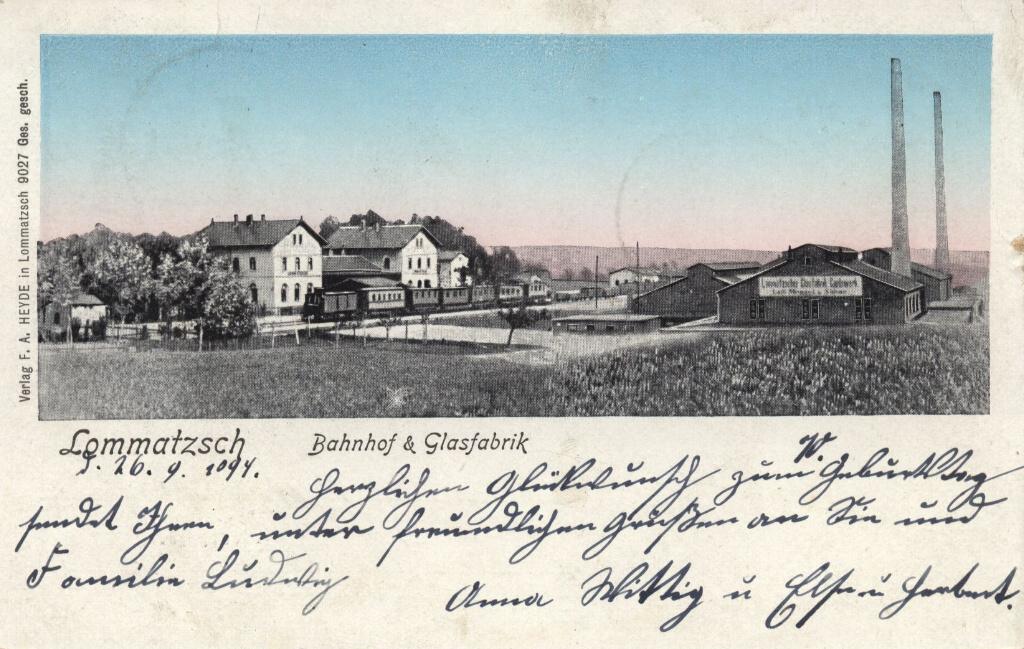 Verlag F. A. HEYDE in Lommatzsch 9027 Ges. gesch.
Lommatzscher Glasfabrik
Lommatzsch
Bahnhof & Glasfabrik
26. 9.
Herzlichen Glückwunsch zum Geburtstag
sendet Ihnen, unter freundlichen Grüßen an Sie und
Familie Ludwig
Anna Wittig u Else u Herbert.